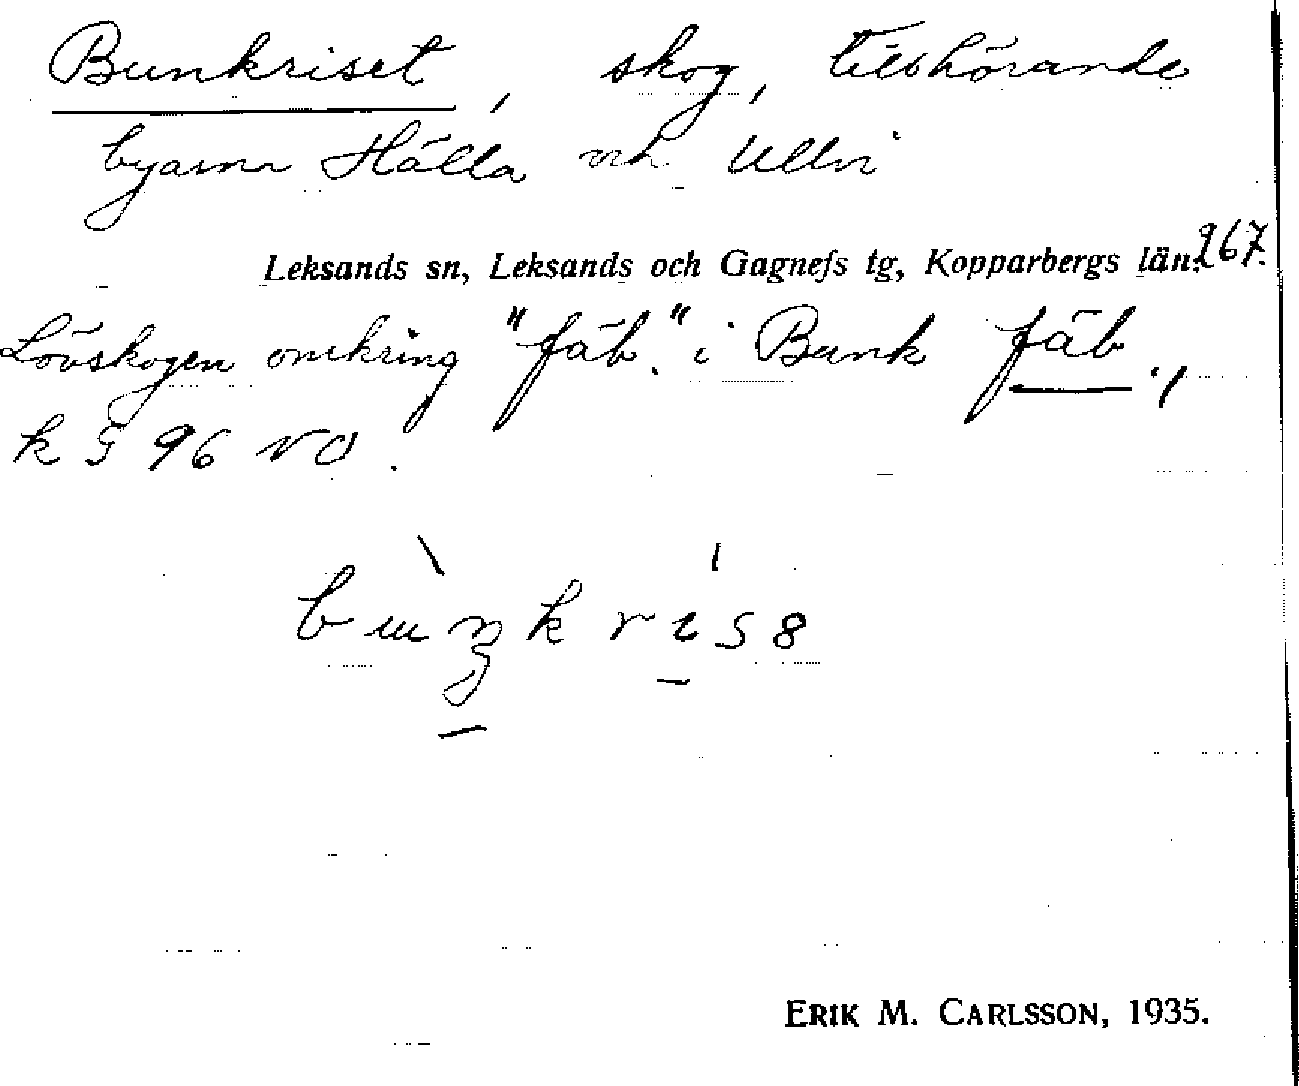 Bunkriset, skog, tillhörande
byarna Hälla och Ullvi
Leksands sn, Leksands och Gagnefs tg, Kopparbergs län. 267.
Lövskogen omkring "fäb." i Bunk fäb.,
k S 96 NO.
ERIK M. CARLSSON, 1935.